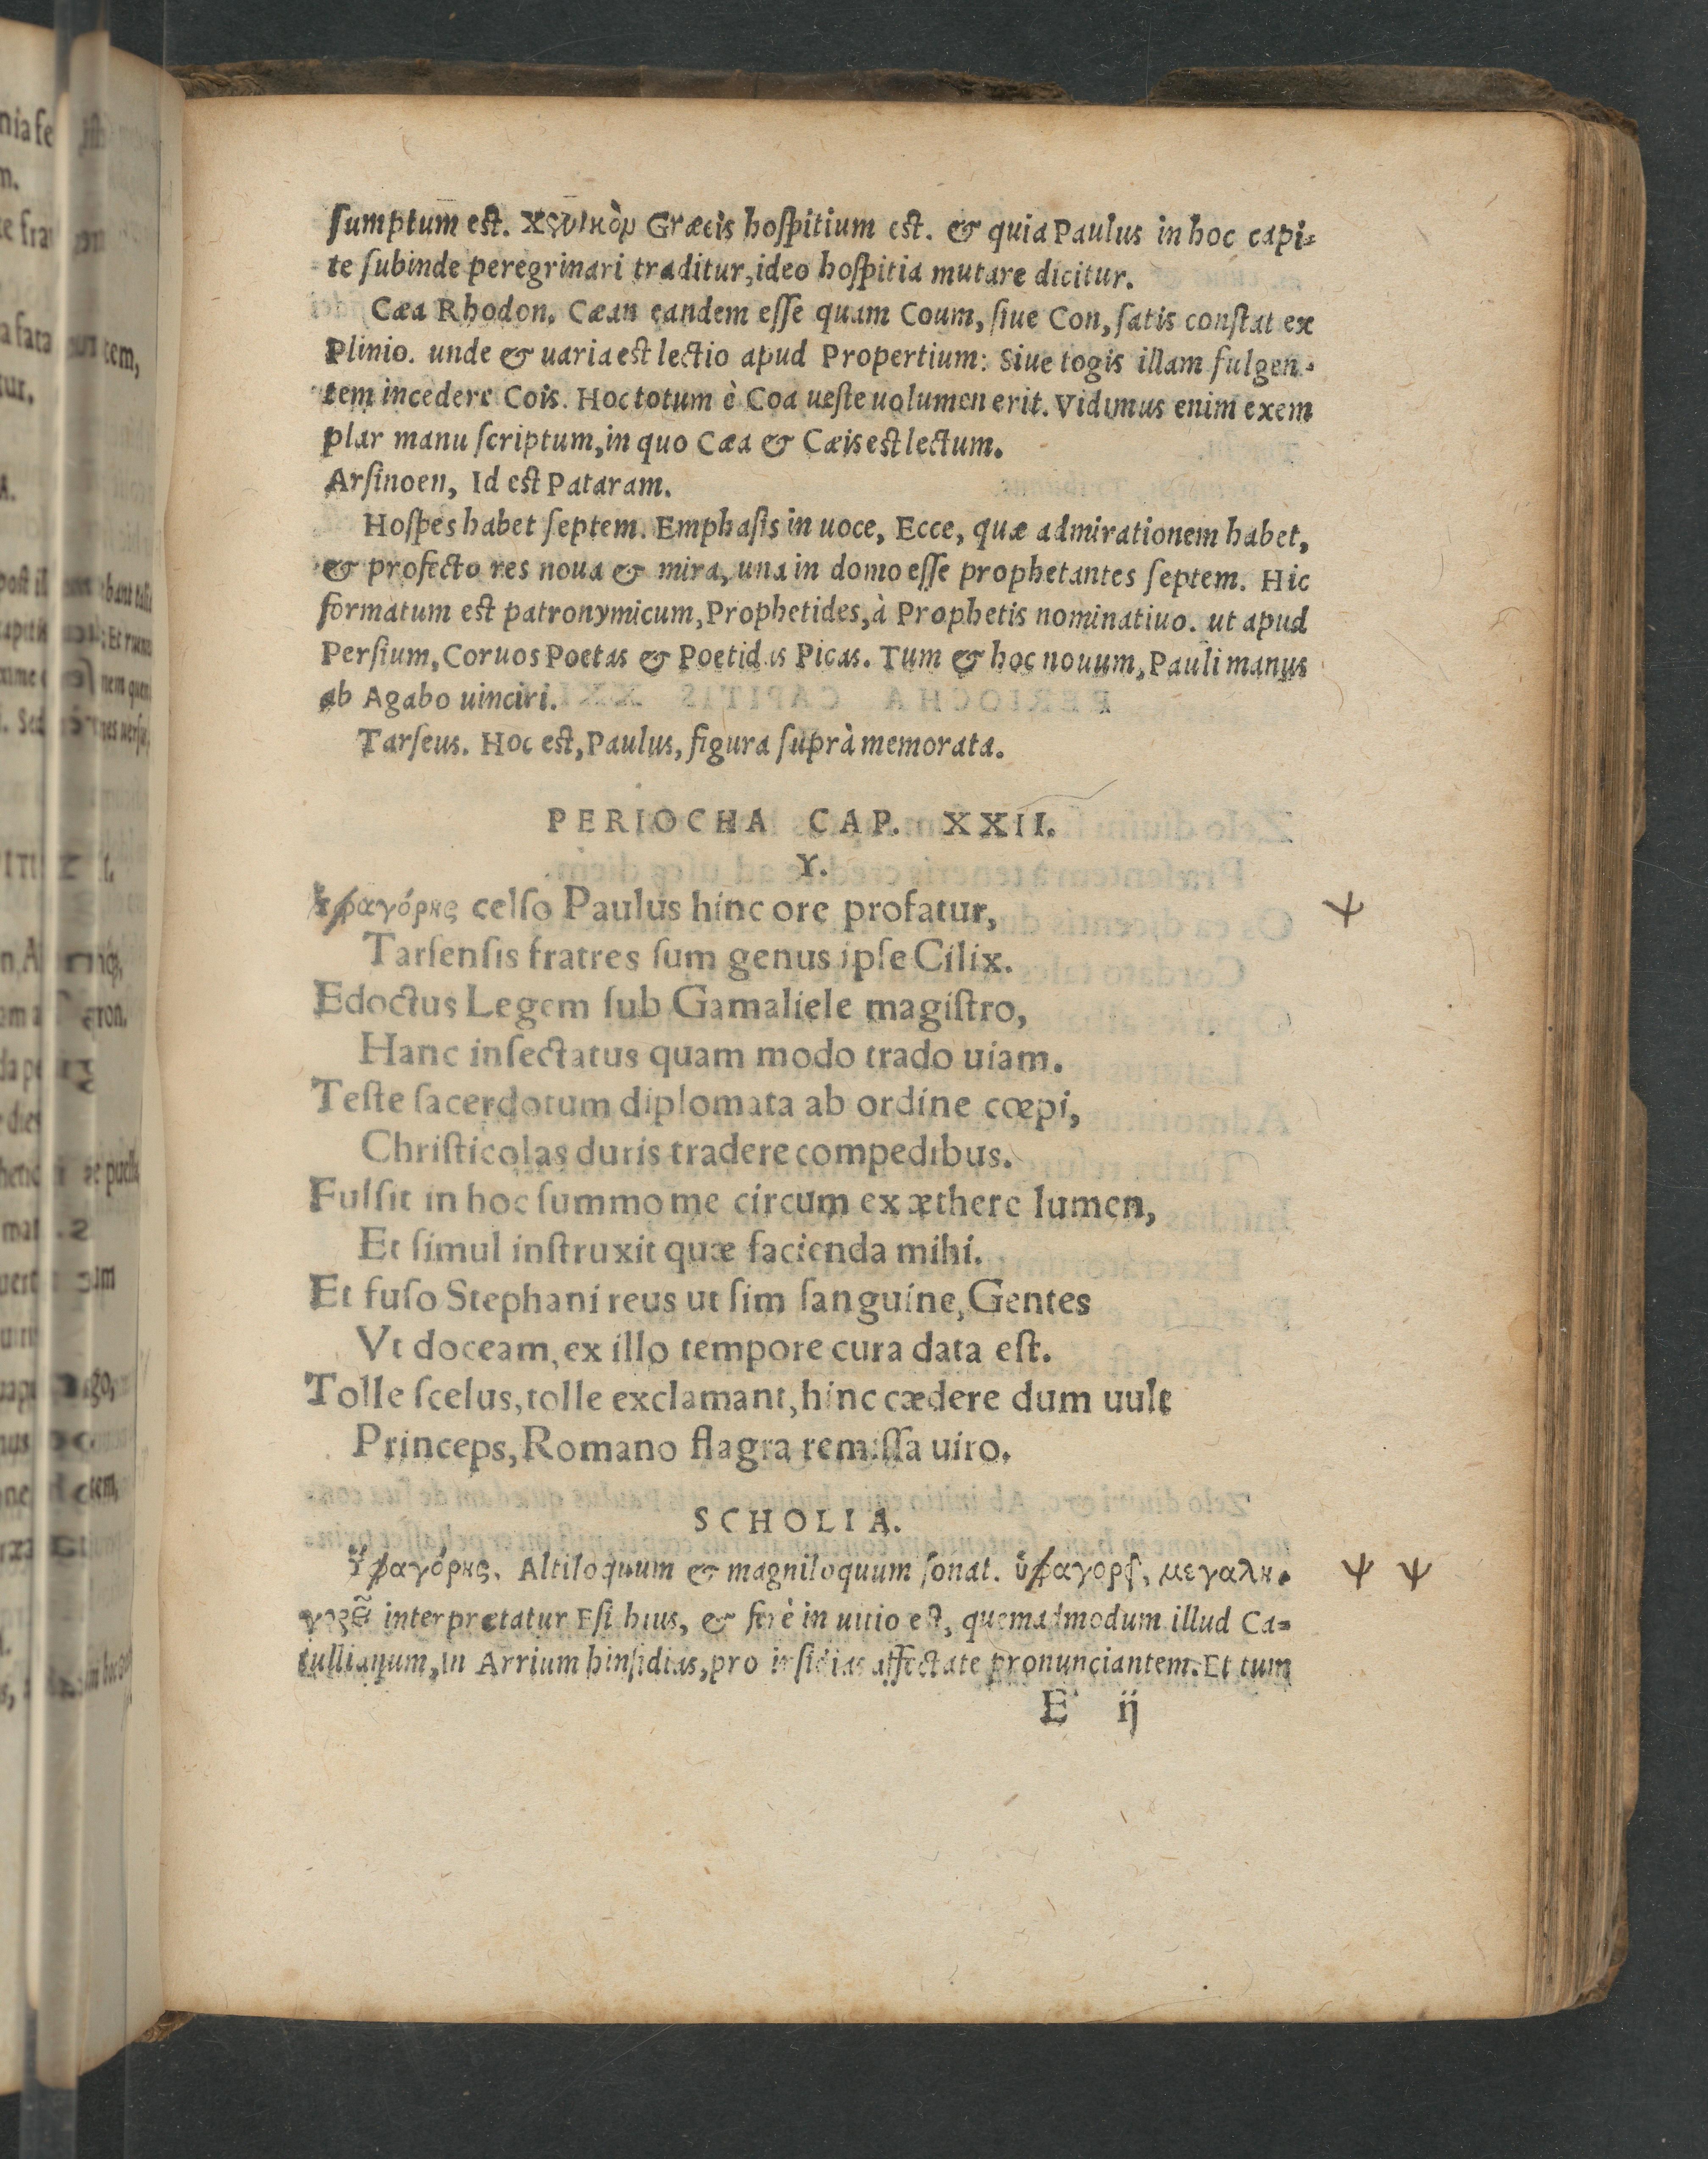 sumptum est. Χενικὸν Græcis hospitium est. & quia Paulus in hoc capi-
te subinde peregrinari traditur, ideo hospitia mutare dicitur.
Cæa Rhodon. Cæan eandem esse quam Coum, siue Con, satis constat ex
Plinio. unde & uaria est lectio apud Propertium: Siue togis illam fulgen-
tem incedere Cois. Hoc totum è Coa ueste uolumen erit. Vidimus enim exem
plar manu scriptum, in quo Cæa & Cæis est lectum.
Arsinoen, Id est Pataram.
Hospes habet septem. Emphasis in uoce, Ecce, quæ admirationem habet,
& profecto res noua & mira, una in domo esse prophetantes septem. Hic
formatum est patronymicum, Prophetides, à Prophetis nominatiuo. ut apud
Persium, Coruos Poetas & Poetidas Picas. Tum & hoc nouum, Pauli manus
ab Agabo uinciri.
Tarseus. Hoc est, Paulus, figura suprà memorata.
PERIOCHA CAP. XXII.
Y.
Υφαγόρης celso Paulus hinc ore profatur,
ψ
Tarsensis fratres sum genus ipse Cilix.
Edoctus Legem sub Gamaliele magistro,
Hanc insectatus quam modo trado uiam.
Teste sacerdotum diplomata ab ordine cœpi,
Christicolas duris tradere compedibus.
Fulsit in hoc summo me circum ex æthere lumen,
Et simul instruxit quæ facienda mihi.
Et fuso Stephani reus ut sim sanguine, Gentes
Vt doceam, ex illo tempore cura data est.
Tolle scelus, tolle exclamant, hinc cædere dum uult
Princeps, Romano flagra remissa uiro.
SCHOLIA.
Ὑφαγόρης. Altiloquum & magniloquum sonat. ὑφαγορ, μεγαλη-
ψ ψ
interpretatur Esibius, & ferè in uitio est, quemadmodum illud Ca-
tullianum, In Arrium hinsidias, pro insidias affectate pronunciantem. Et tum
E ij